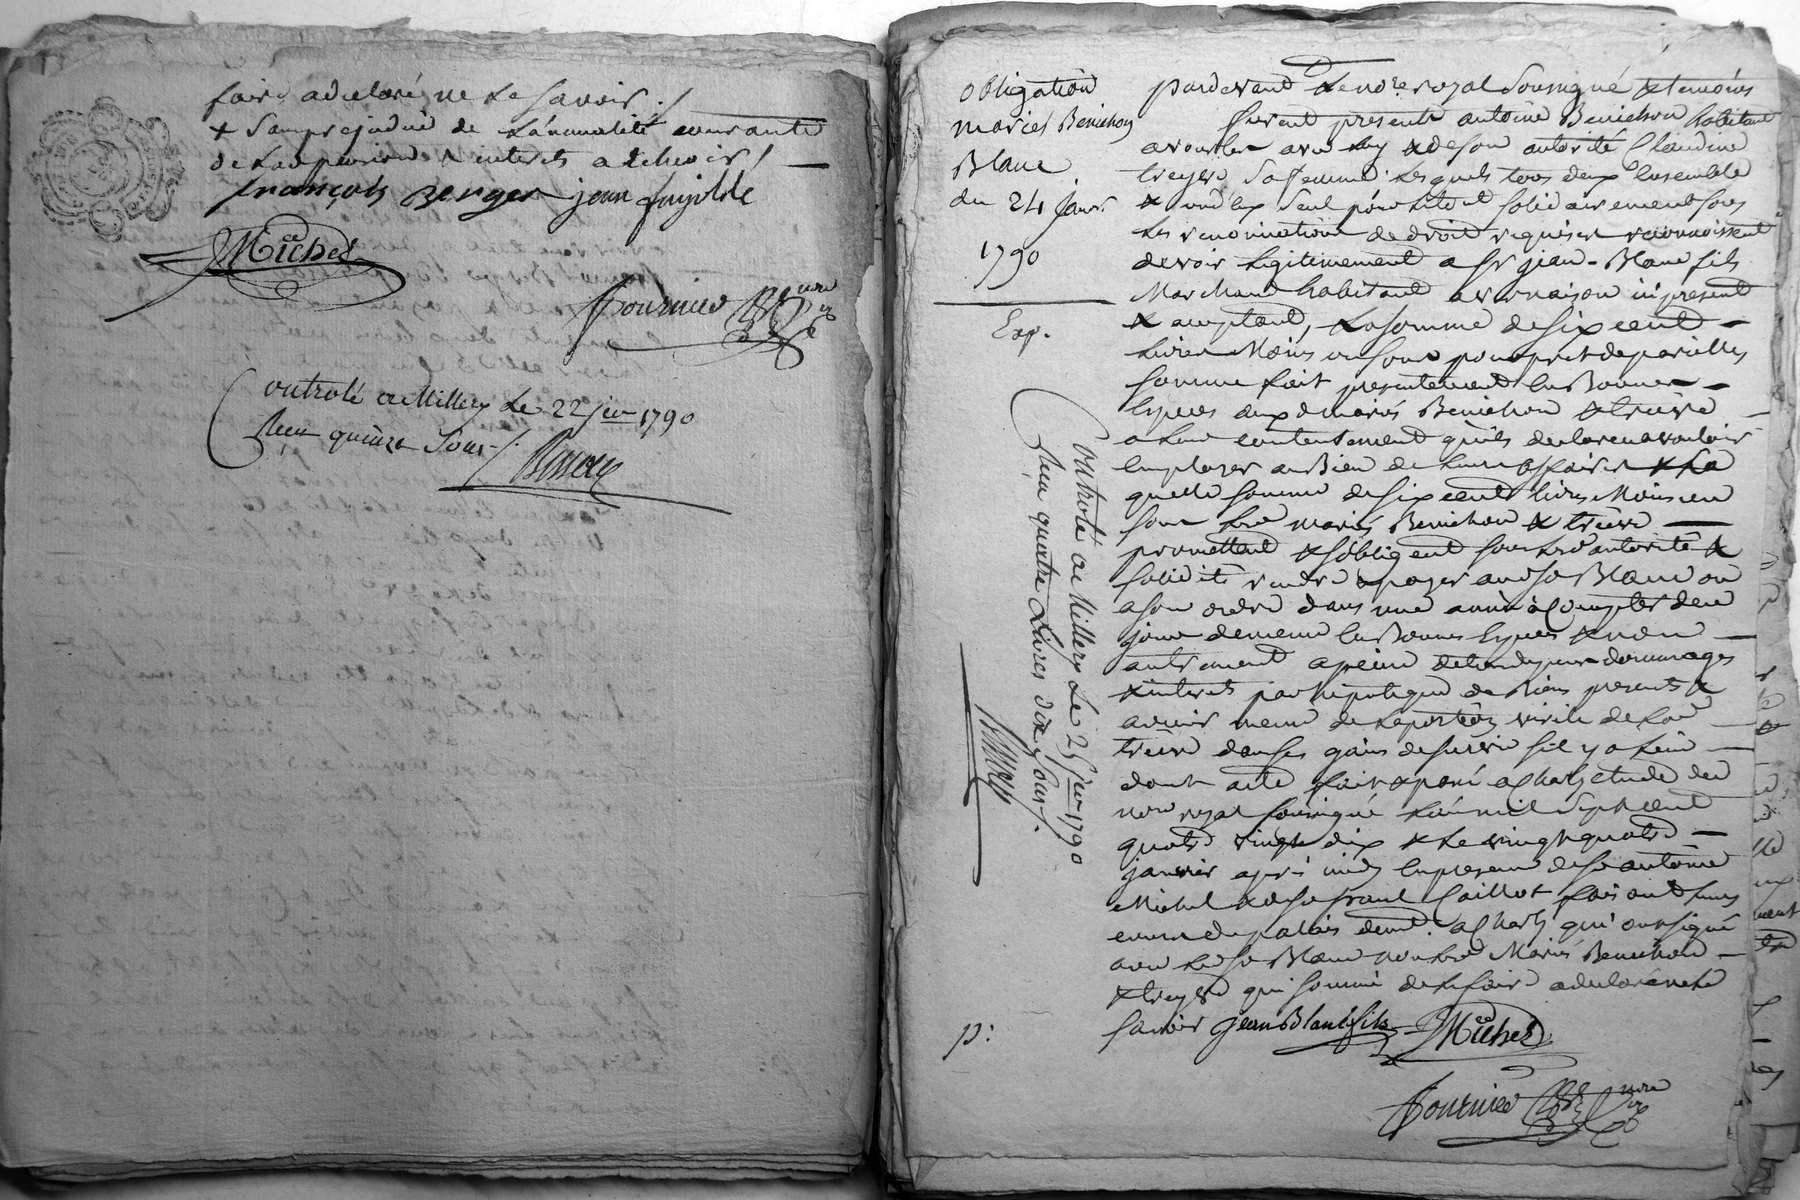 faire a declaré ne le savoir /.
+ sans prejudice de l'annualité courante
de la pension & interets a echoir /.
françois Berger jean
Michel
Fournier nre
Controlé a Millery Le 22 jer 1790
Reçu quinze Sous /.
obligation
mariés Benichon
Blanc
du 24 Janr.
1790
Exp.
Controlé a Millery Le 25 jer 1790
Reçu quatre Livres dix Sous /.
pardevant Le nore royal soussigné & temoins
furent presents antoine Benichon habitant
a vourles avec luy & de son autorité Claudine
treyve sa femme lesquels tous deux Ensemble
& un d'eux seul pour le tout solidairement sous
les renonciations de droit requises reconnoissent
devoir legitimement a sr jean Blanc fils
Marchand habitant a vernaison ici present
& acceptant, La somme de six cent
Livres Moins un sous pour pret de pareille
somme fait presentement En Bonnes
Especes auxd mariés Benichon & treive
a Leur contentement qu'ils declarent vouloir
Employer au Bien de Leurs affaires La
quelle somme de six cent livres Moins un
sous Lesd mariés Benichon & treive
promettent & s'obligent sous lesd autorité &
solidité rendre & payer aud sr Blanc ou
a son ordre dans une année a Compter de ce
jour d'en un En Bonnes Especes & non
autrement a peine de tous depens dommages
& interets par hipoteque de Biens presents &
avenir meme de la portion virile de lad
treive dans ses gains de survie s'il y a lieu
dont acte fait & passé a Charly etude du
nore royal soussigné L'an mil sept cent
quatre vingt dix & Le vingt quatre
janvier après midy En presence de sr antoine
Michel & de sr Caillot
demt. a Charly qui ont signé
avec Led sr Blanc non Lesd Mariés Benichon
& treyve qui sommé de Le faire a declaré ne le
savoir jean Blanc fils Michel
p:
Fournier nre